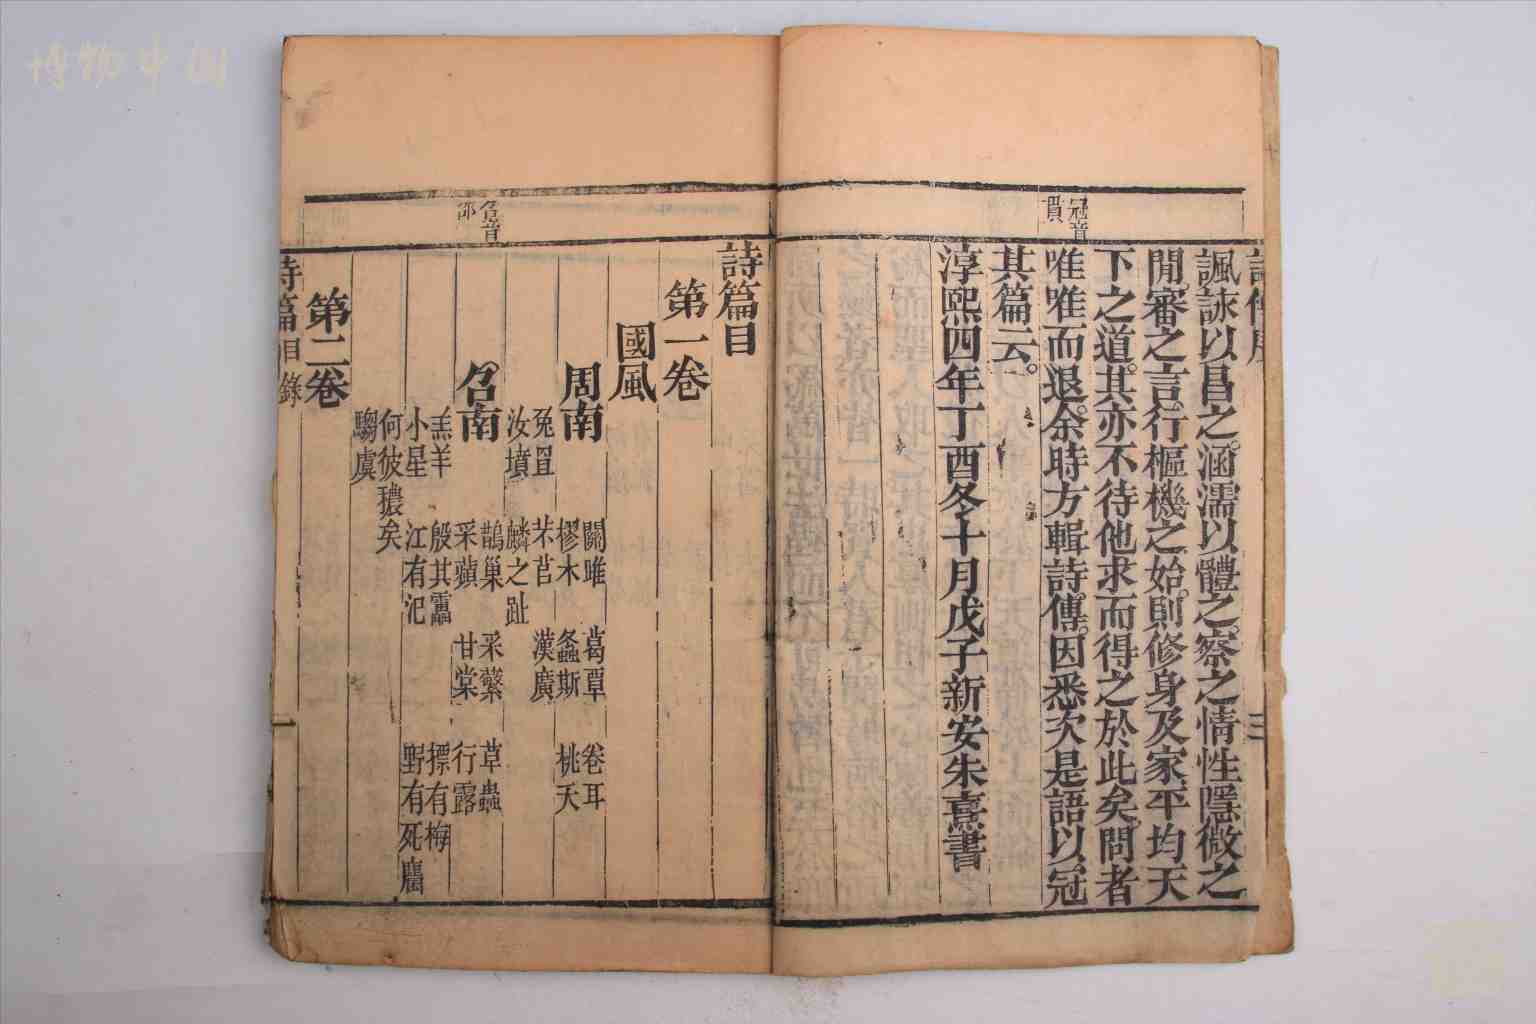 博物中国
冠音
貫
詩傳序
諷詠以昌之涵濡以體之察之情性隱微之
閒審之言行樞機之始則修身及家平均天
下之道其亦不待他求而得之於此矣問者
唯唯而退余時方輯詩傳因悉次是語以冠
其篇云
淳熙四年丁酉冬十月戊子新安朱熹書
三
召音
邵
詩篇目
第一卷
國風
周南
關雎 葛覃 卷耳
樛木 螽斯 桃夭
兔罝 芣苢 漢廣
汝墳 麟之趾
召南
鵲巢 采蘩 草蟲
采蘋 甘棠 行露
羔羊 殷其靁 摽有梅
小星 江有汜 野有死麕
何彼襛矣
騶虞
第二卷
詩篇目錄